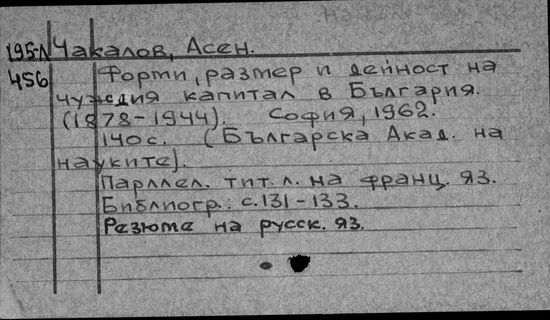 195-Л Чакалов, Асен.
456 Форми, размер и дейност на
чуждия капитал в България.
(1878-1944). София, 1962.
140 с. (Българска Акад. на
науките).
Парллел. тит. л. на франц. яз.
Библиогр.: с.131-133.
Резюме на русск. яз.